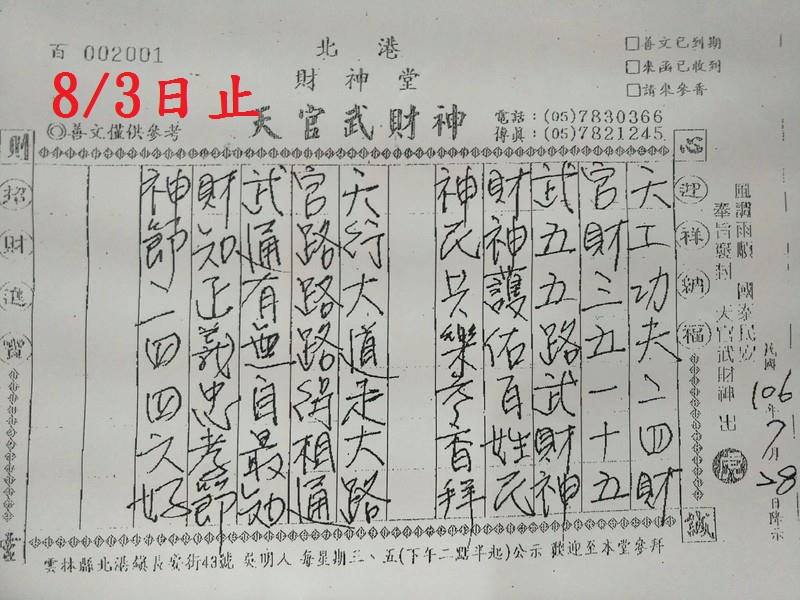 百 002001
8/3日止
◎善文僅供參考
北港
財神堂
天官武財神
□善文已到期
□來函已收到
□請來參香
電話:(05)7830366
傳真:(05)7821245
風調雨順 國泰民安
奉旨敕封 天官武財神 出
民國106年7月28日降示
心
迎祥納福
誠
天工功夫二四財
官財三五一十五
武五五路武財神
財神護佑百姓民
神民共樂參香拜
天行大道走大路
官路路路得相通
武通有無自最知
財知正義忠孝節
神節二四四六好
則
招財進寶
靈
雲林縣北港鎮長安街43號 吳明人 每星期三、五(下午二點半起)公示 歡迎至本堂參拜